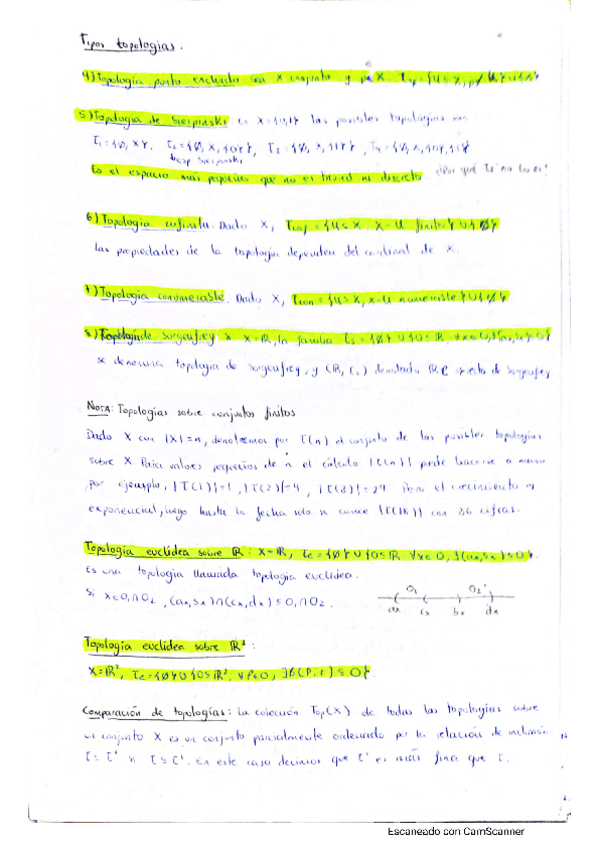 Tipos topologías.
4) Topología punto excluido sea X conjunto y p∈X.
5) Topología de Sierpinski es X={0,1} las posibles topologías son
τ₁={∅,X}, τ₂={∅,X,{0}}, τ₃={∅,X,{1}}, τ₄={∅,X,{0},{1}}
Sierpinski
Es el espacio más pequeño que no es trivial ni discreto ¿Por qué τ₃ no lo es?
6) Topología cofinita. Dado X, τcof={U⊆X X-U finito}∪{∅}
las propiedades de la topología dependen del cardinal de X.
7) Topología conumerable. Dado X, τcon={U⊆X, X-U numerable}∪{∅}
8) Topología de Sorgenfrey X=ℝ, la familia
se denomina topología de Sorgenfrey, y denotado espacio de Sorgenfrey
NOTA: Topologías sobre conjuntos finitos
Dado X con |X|=n, denotemos por τ(n) el conjunto de las posibles topologías
sobre X. Para valores pequeños de n el cálculo |τ(n)| puede hacerse a mano
por ejemplo, |τ(1)|=1, |τ(2)|=4, |τ(3)|=29 Pero el crecimiento es
exponencial, luego hasta la fecha solo se conoce |τ(18)| con 36 cifras.
Topología euclídea sobre ℝ: X=ℝ, τe={∅}∪{O⊆ℝ ∀x∈O, ∃(ax,bx)⊆O}.
Es una topología llamada topología euclídea.
Si x∈O₁∩O₂, (ax,bx)∩(cx,dx)⊆O₁∩O₂.
O₁ O₂
ax cx bx dx
Topología euclídea sobre ℝ²:
X=ℝ², τe={∅}∪{O⊆ℝ²: ∀P∈O, ∃B(P,r)⊆O}.
Comparación de topologías: La colección Top(X) de todas las topologías sobre
un conjunto X es un conjunto parcialmente ordenado por la relación de inclusión
τ≤τ' si τ⊆τ'. En este caso decimos que τ' es más fina que τ.
Escaneado con CamScanner